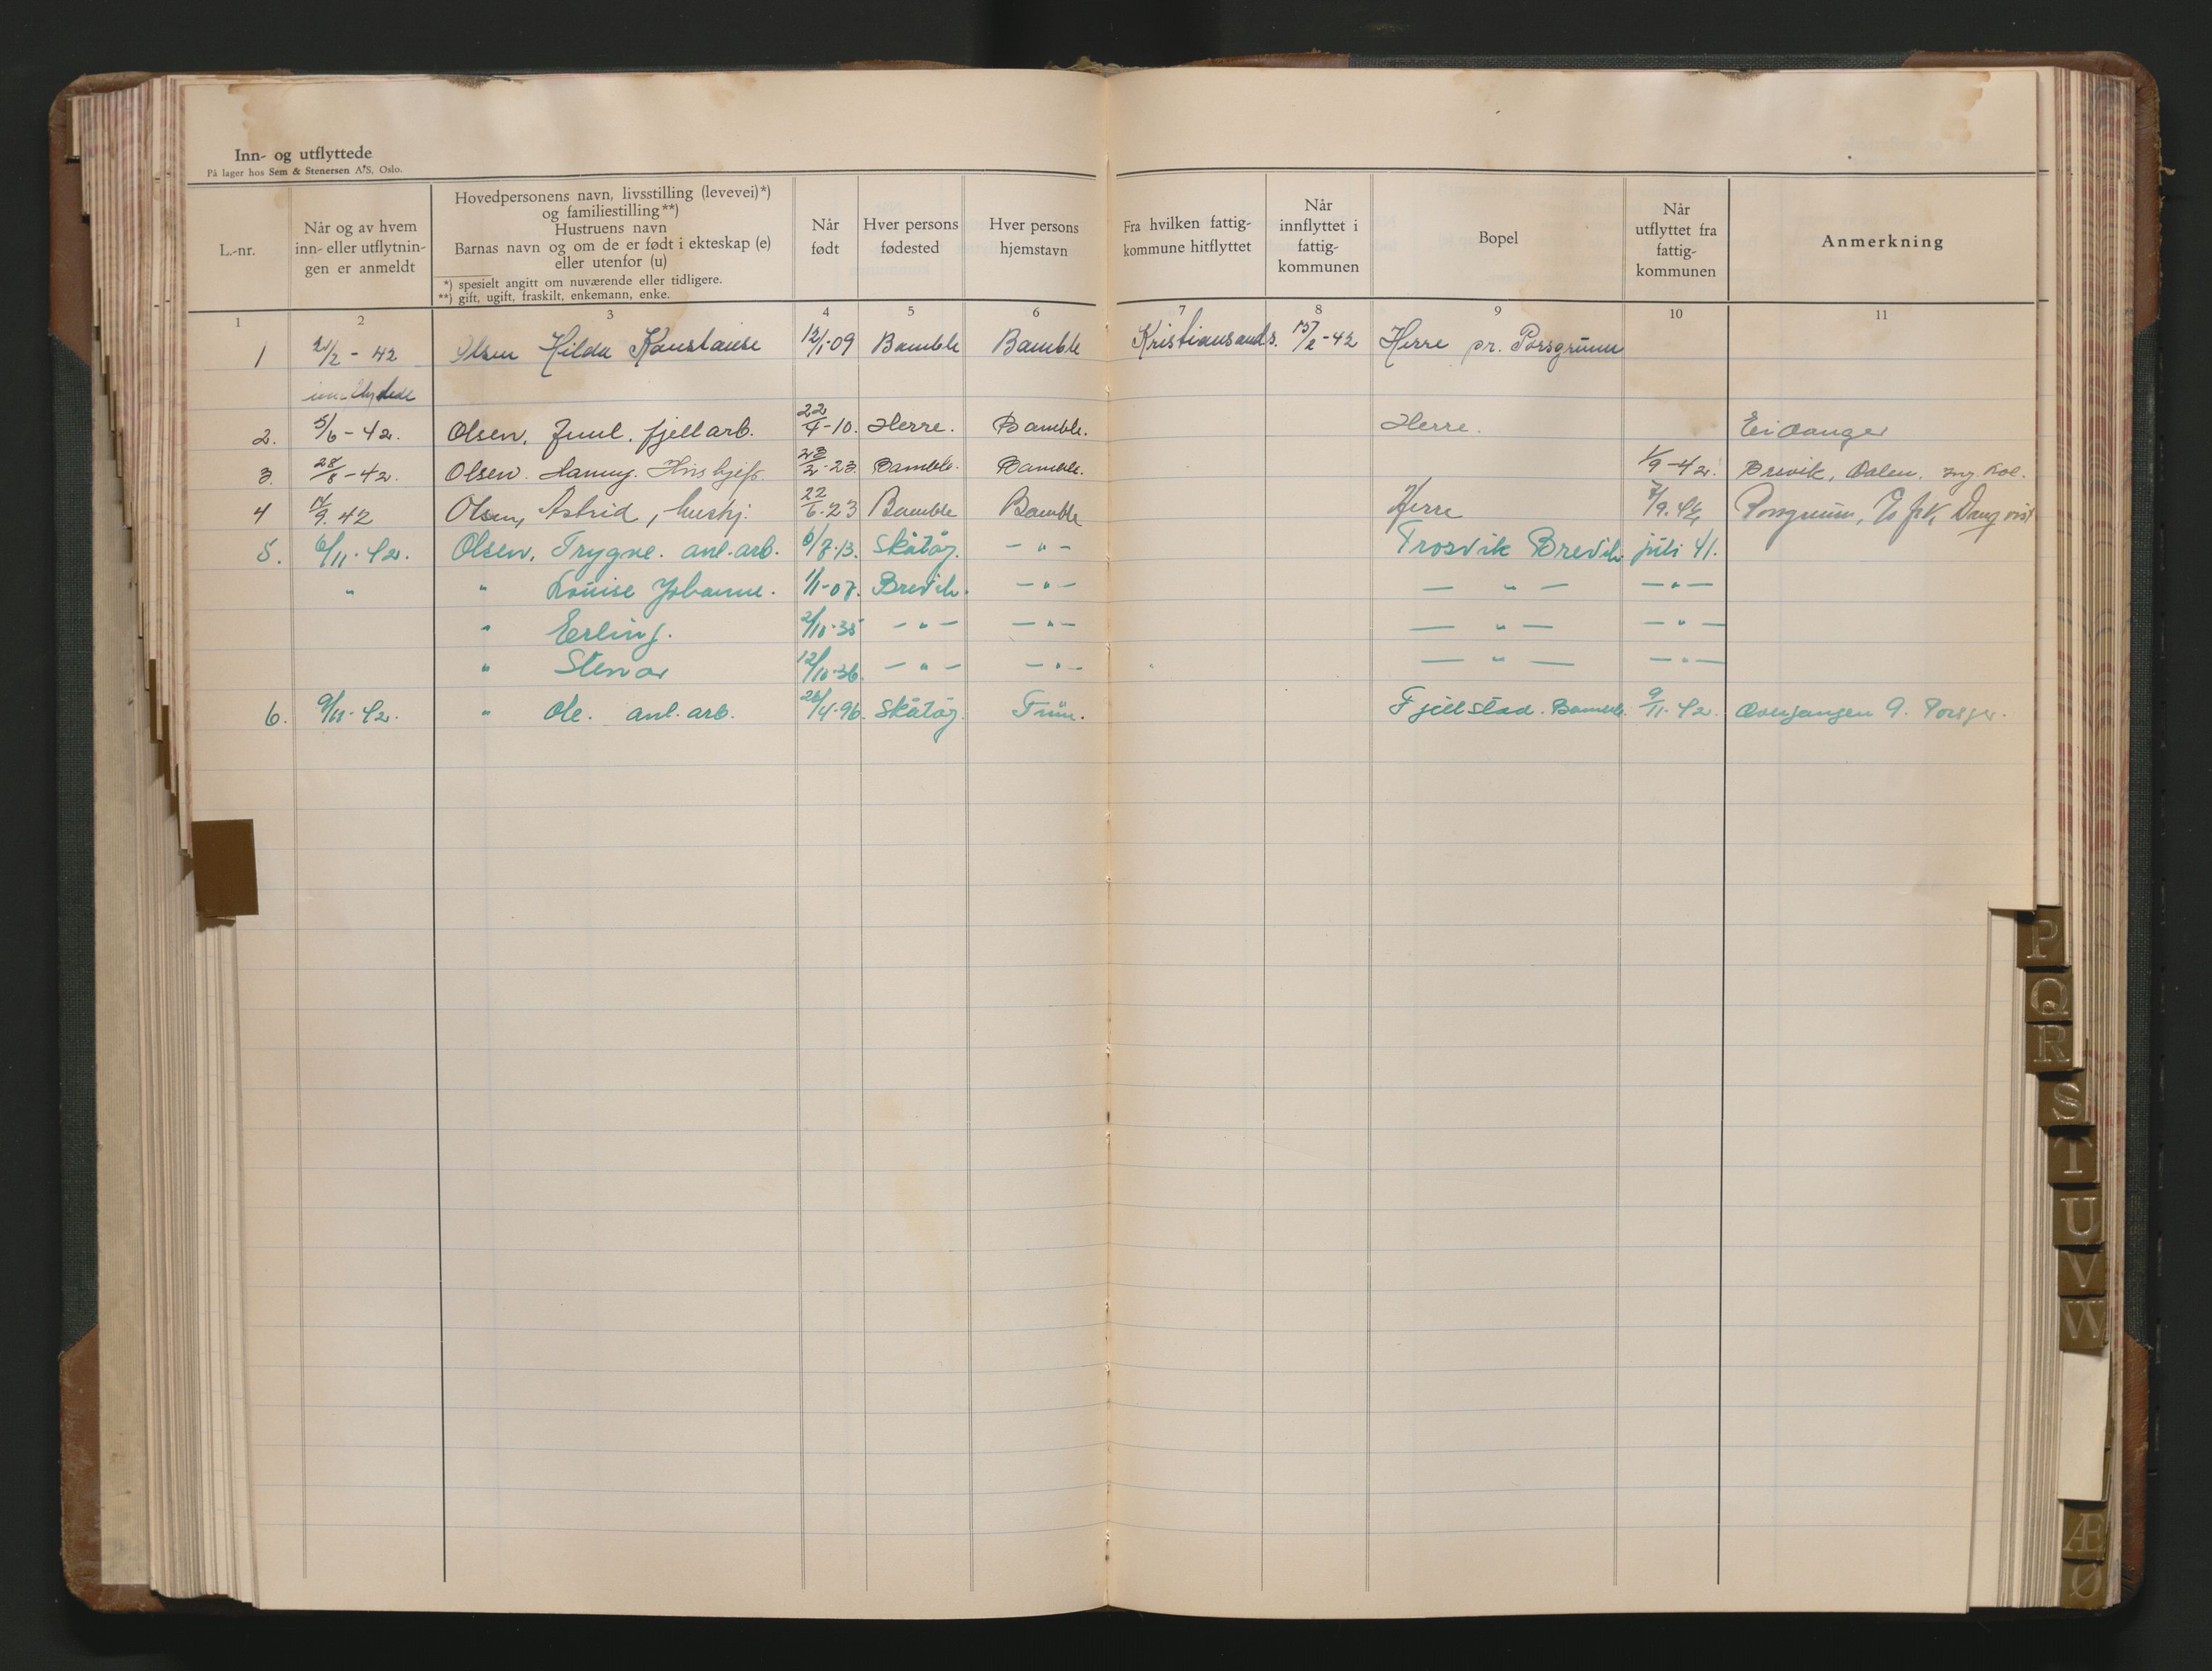 Inn- og utflyttede
På lager hos Sem & Stenersen A/S, Oslo.
L.-nr.
Når og av hvem
inn- eller utflytnin-
gen er anmeldt
Hovedpersonens navn, livsstilling (levevei)*)
og familiestilling**)
Hustruens navn
Barnas navn og om de er født i ekteskap (e)
eller utenfor (u)
*) spesielt angitt om nuværende eller tidligere.
**) gift, ugift, fraskilt, enkemann, enke.
Når
født
Hver persons
fødested
Hver persons
hjemstavn
Fra hvilken fattig-
kommune hitflyttet
Når
innflyttet i
fattig-
kommunen
Bopel
Når
utflyttet fra
fattig-
kommunen
Anmerkning
1 2 3 4 5 6 7 8 9 10 11
1 21/2 - 42 Olsen Hilda Konstanse 12/1-09 Bamble Bamble Kristiansand s. /2-42 Herre pr. Porsgrunn
2. 5/6-42. Olsen, Juul. fjellarb. 22/4-10. Herre. Bamble. Herre. Eidanger
3. 28/8-42. Olsen. 23/2-23. Bamble. Bamble. 1/9-42. Brevik, Dalen.
4 9. 42 Olsen, Astrid, hushj. 22/6.23 Bamble Bamble Herre 7/9.42 Porsgrunn,
5. 6/11.42. Olsen, Trygve. anl.arb. 6/7.13. Skåtøy. - " - Trosvik Brevik. juli 41.
" " Louise Johanne. 1/1-07. Brevik. - " - - " - - " -
" Erling. 2/10.35 - " - - " - - " - - " -
" Stenar 12/10-36. - " - - " - - " - - " -
6. 9/11.42. " Ole. anl.arb. 26/4.96. Skåtøy. Fjellstad. Bamble. 9/11.42.
P
Q
R
S
T
U
V
W
Æ
Ø